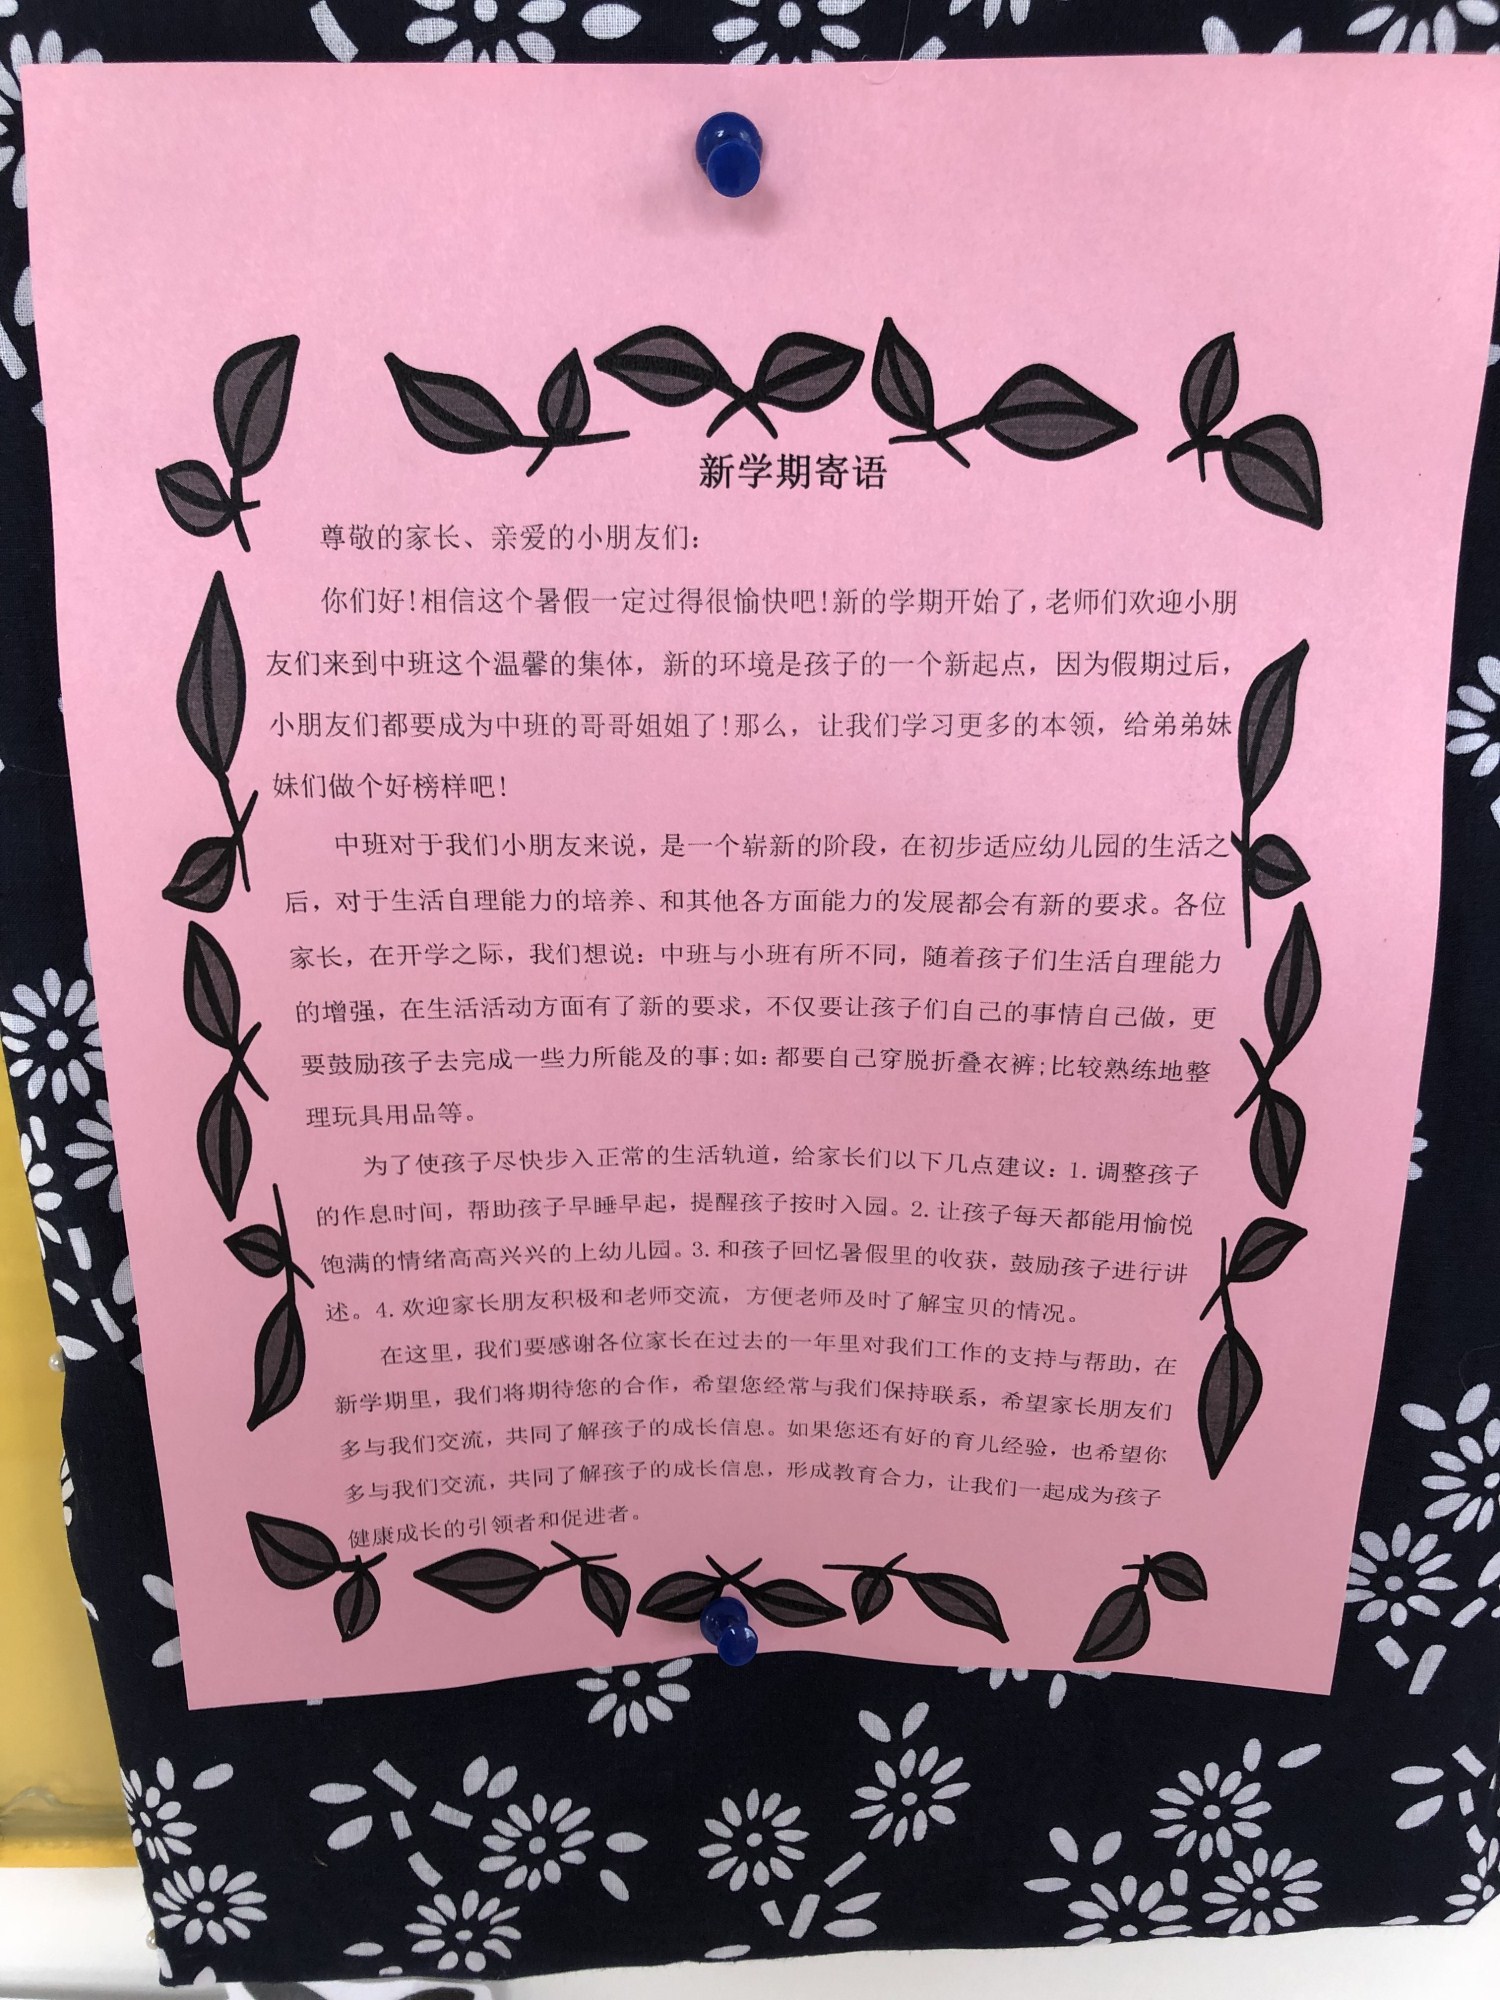 新学期寄语
尊敬的家长、亲爱的小朋友们:
你们好!相信这个暑假一定过得很愉快吧!新的学期开始了,老师们欢迎小朋
友们来到中班这个温馨的集体，新的环境是孩子的一个新起点，因为假期过后，
小朋友们都要成为中班的哥哥姐姐了!那么，让我们学习更多的本领，给弟弟妹
妹们做个好榜样吧!
中班对于我们小朋友来说，是一个崭新的阶段，在初步适应幼儿园的生活之
后，对于生活自理能力的培养、和其他各方面能力的发展都会有新的要求。各位
家长，在开学之际，我们想说：中班与小班有所不同，随着孩子们生活自理能力
的增强，在生活活动方面有了新的要求，不仅要让孩子们自己的事情自己做，更
要鼓励孩子去完成一些力所能及的事;如:都要自己穿脱折叠衣裤;比较熟练地整
理玩具用品等。
为了使孩子尽快步入正常的生活轨道，给家长们以下几点建议：1.调整孩子
的作息时间，帮助孩子早睡早起，提醒孩子按时入园。2.让孩子每天都能用愉悦
饱满的情绪高高兴兴的上幼儿园。3.和孩子回忆暑假里的收获，鼓励孩子进行讲
述。4.欢迎家长朋友积极和老师交流，方便老师及时了解宝贝的情况。
在这里，我们要感谢各位家长在过去的一年里对我们工作的支持与帮助，在
新学期里，我们将期待您的合作，希望您经常与我们保持联系，希望家长朋友们
多与我们交流，共同了解孩子的成长信息。如果您还有好的育儿经验，也希望你
多与我们交流，共同了解孩子的成长信息，形成教育合力，让我们一起成为孩子
健康成长的引领者和促进者。